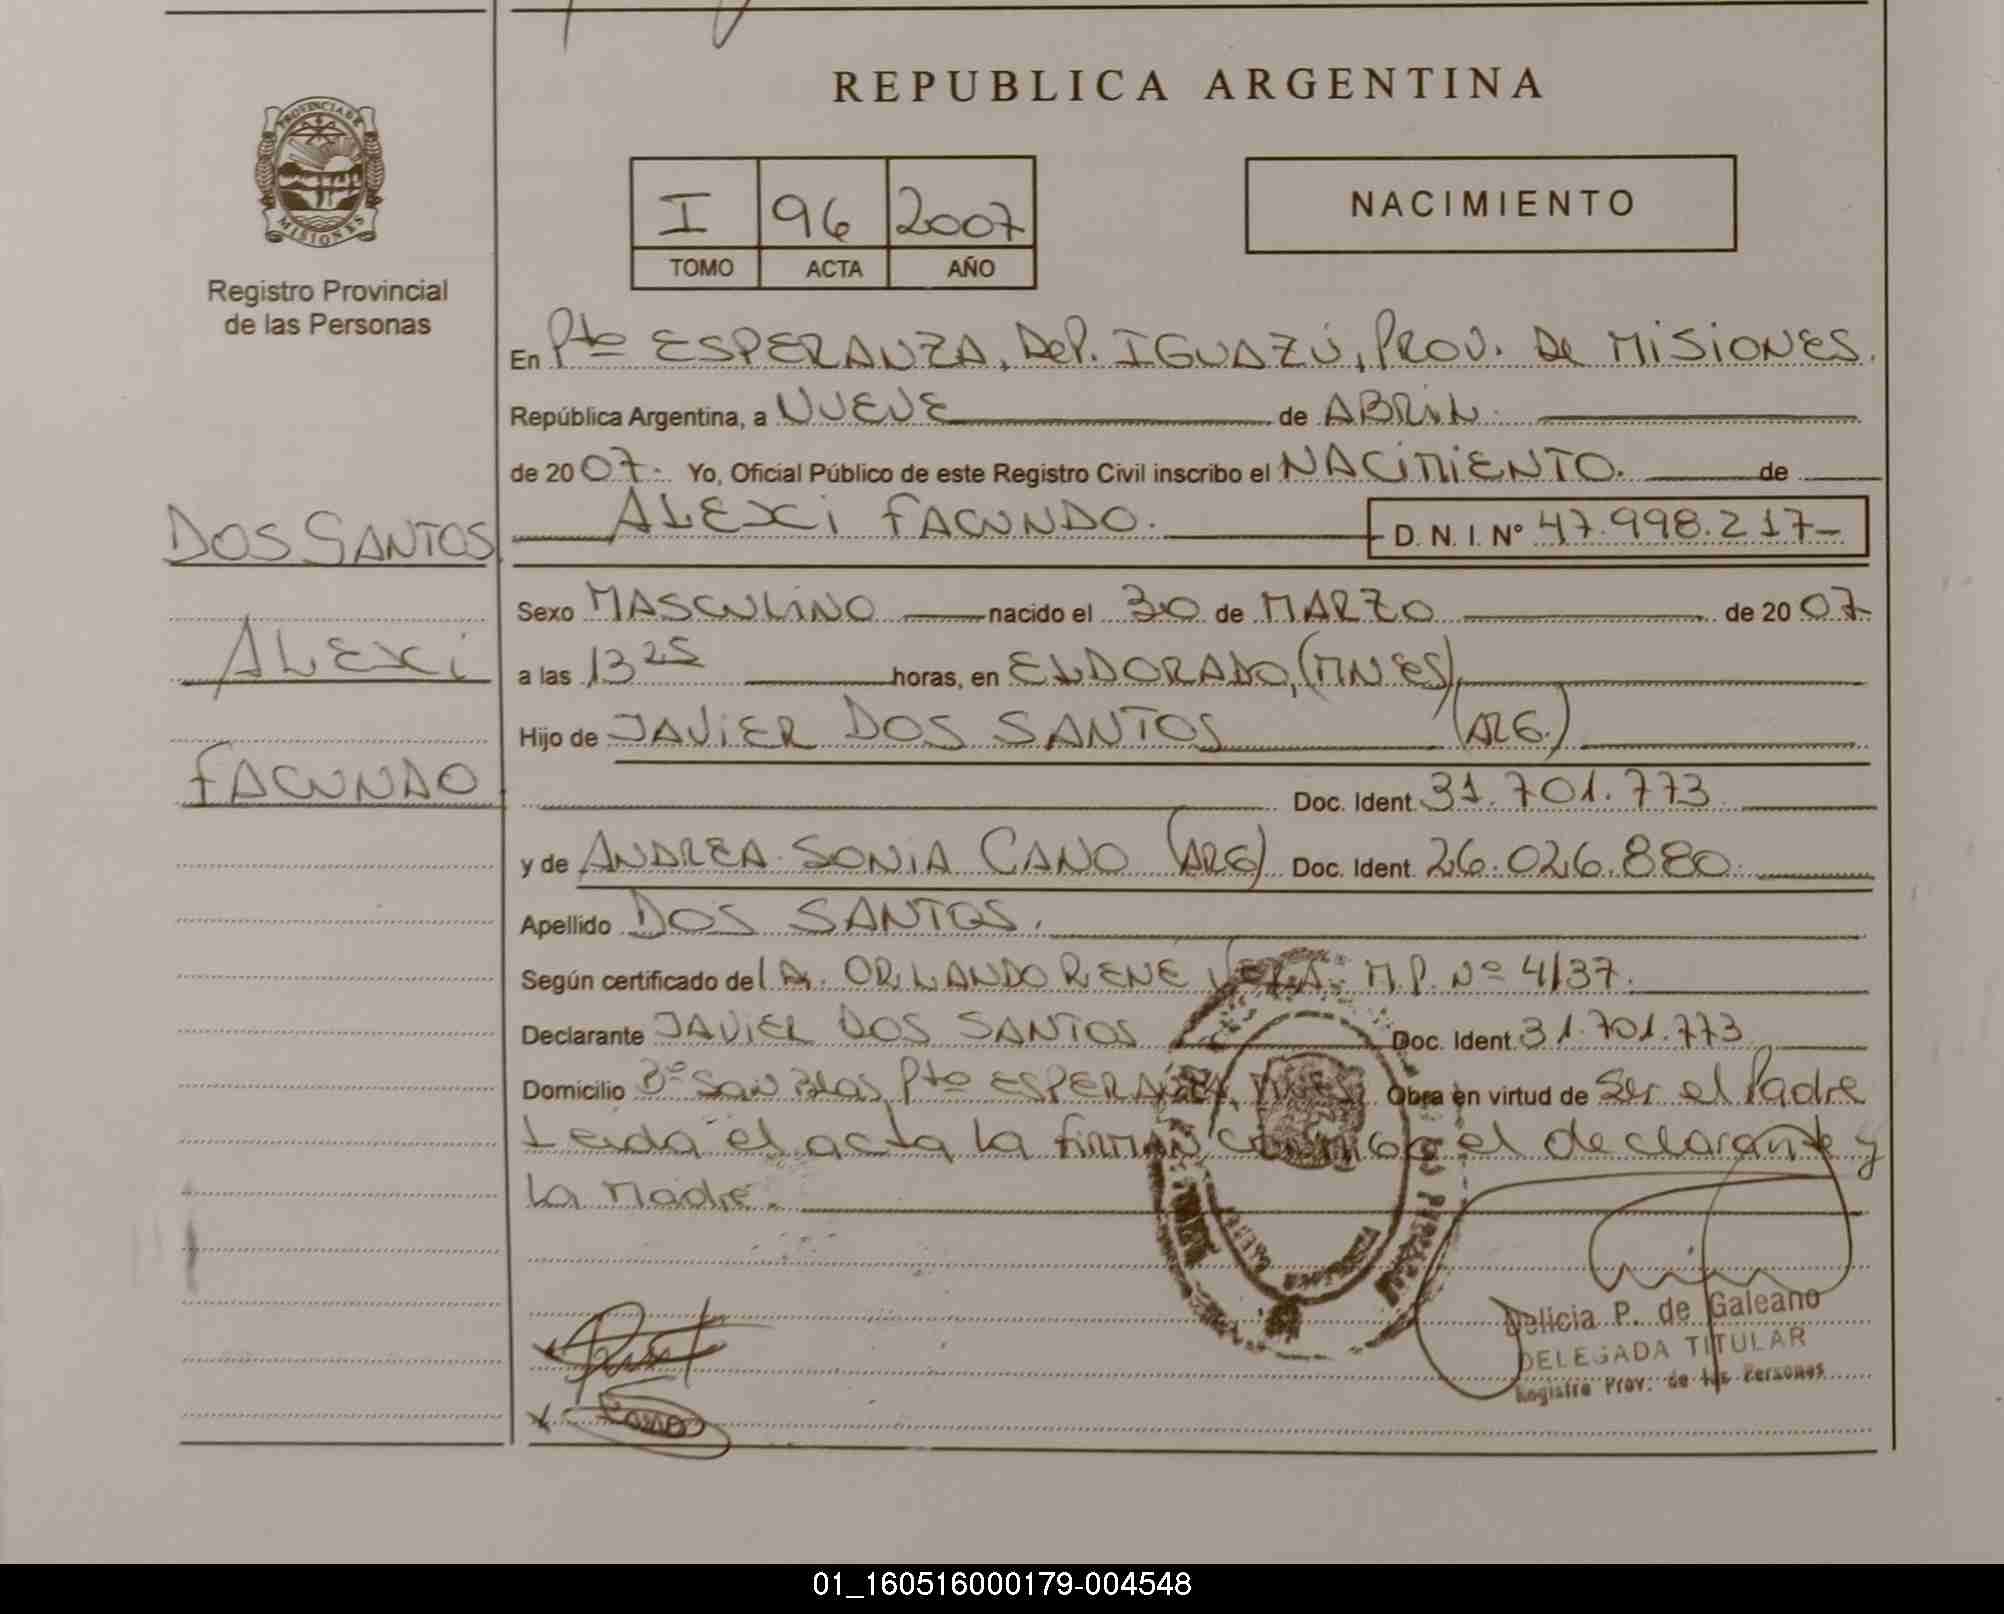 REPUBLICA ARGENTINA
PROVINCIA DE
MISIONES
Registro Provincial
de las Personas
I 96 2007
TOMO ACTA AÑO
NACIMIENTO
En Pto ESPERANZA, DeP. IGUAZÚ, PROV. De MISIONES.
República Argentina, a NUEVE de ABRIL.
de 2007. Yo, Oficial Público de este Registro Civil inscribo el NACIMIENTO. de
ALEXI FACUNDO. D. N. I. Nº 47.998.217-
DOS SANTOS
ALEXI
FACUNDO
Sexo MASCULINO nacido el 30 de MARZO de 2007
a las 13 25 horas, en ELDORADO, (MNES)
Hijo de JAVIER DOS SANTOS (ARG.)
Doc. Ident. 31.701.773
y de ANDREA SONIA CANO (ARG) Doc. Ident. 26.026.880.
Apellido DOS SANTOS.
Según certificado del ORLANDO RENE VERA M.P. Nº 4137.
Declarante JAVIER DOS SANTOS Doc. Ident. 31.701.773
Domicilio Bº San Blas Pto ESPERANZA, MNES. Obra en virtud de Ser el Padre
Leida el acta la FIRMAN conmigo el declarante y
la Madre.
Delicia P. de Galeano
DELEGADA TITULAR
Registro Prov. de las Personas
01_160516000179-004548